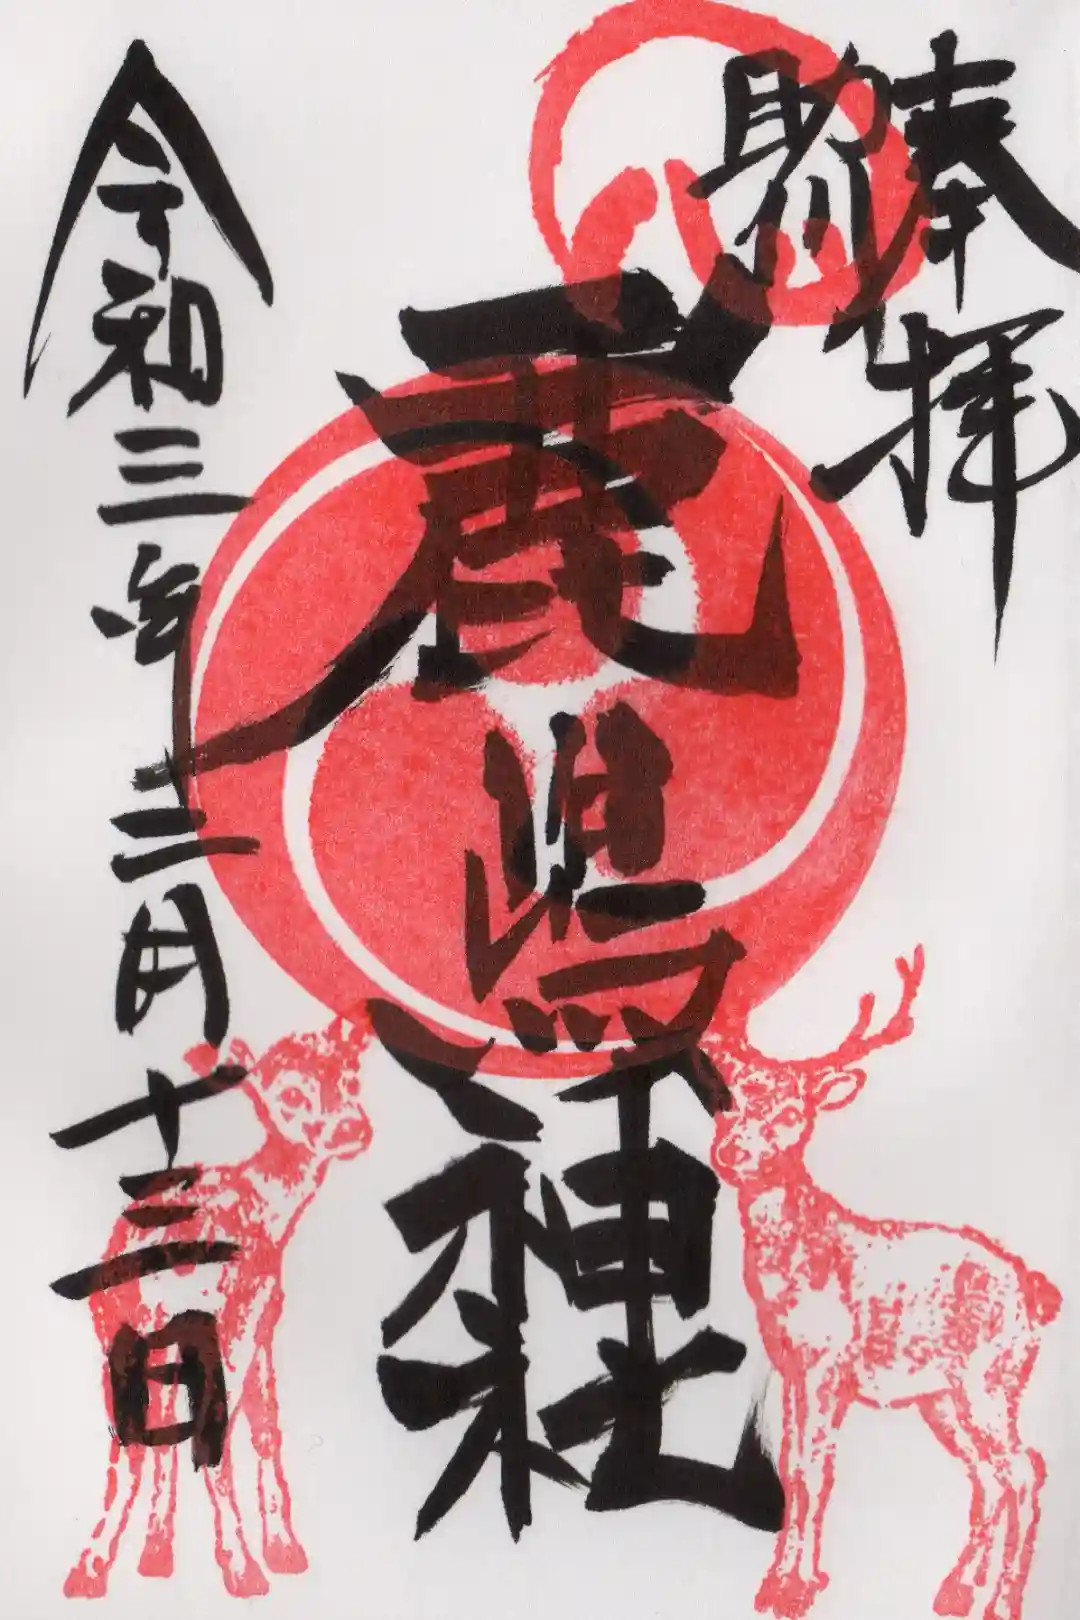 奉拝
助川
鹿嶋神社
令和三年三月十三日